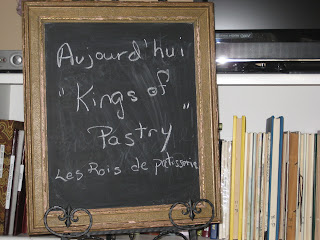 Aujourd'hui
"Kings of
Pastry"
Les Rois de patisserie